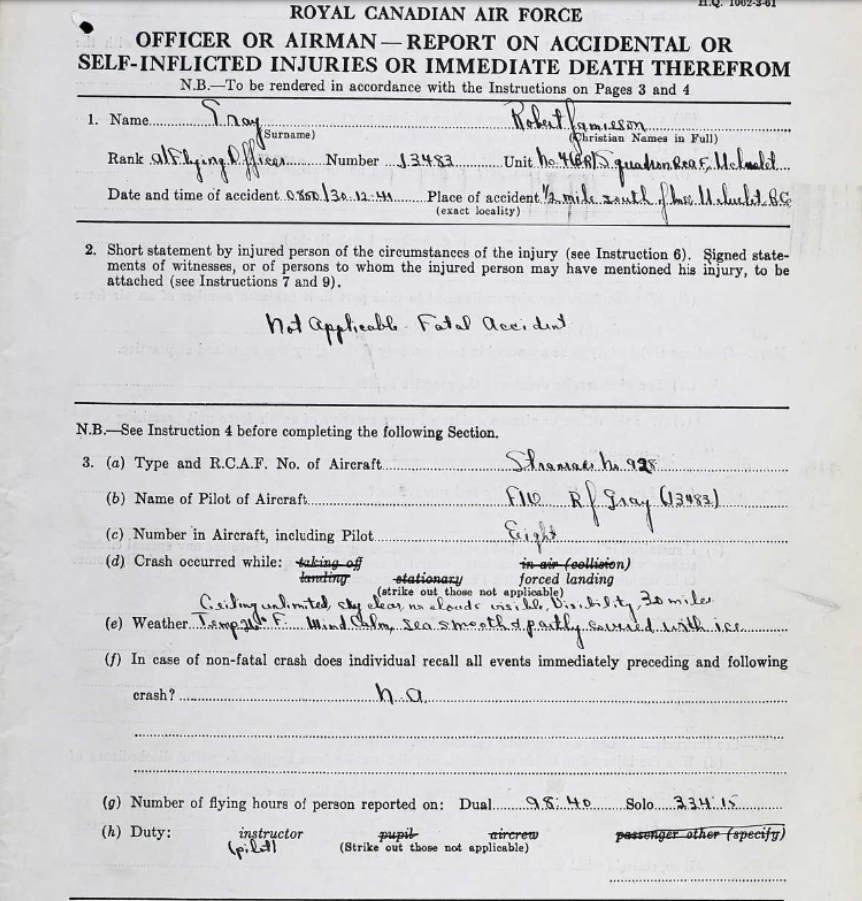 H.Q. 1002-3-61
ROYAL CANADIAN AIR FORCE
OFFICER OR AIRMAN—REPORT ON ACCIDENTAL OR
SELF-INFLICTED INJURIES OR IMMEDIATE DEATH THEREFROM
N.B.—To be rendered in accordance with the Instructions on Pages 3 and 4
1. Name Gray Robert Jamieson
(Surname) (Christian Names in Full)
Rank Flying Officer Number J3483 Unit Squadron Ucluelet
Date and time of accident 30.12.41 Place of accident ½ mile south of Ucluelet B.C.
(exact locality)
2. Short statement by injured person of the circumstances of the injury (see Instruction 6). Signed state-
ments of witnesses, or of persons to whom the injured person may have mentioned his injury, to be
attached (see Instructions 7 and 9).
Not Applicable - Fatal Accident
N.B.—See Instruction 4 before completing the following Section.
3. (a) Type and R.C.A.F. No. of Aircraft Stranraer No 928
(b) Name of Pilot of Aircraft F/O R J Gray (J3483)
(c) Number in Aircraft, including Pilot Eight
(d) Crash occurred while: taking off in air (collision)
landing stationary forced landing
(strike out those not applicable)
Ceiling unlimited, sky clear, no clouds visible, Visibility, 30 miles
(e) Weather Temp F. Wind Calm, sea smooth & partly covered with ice
(f) In case of non-fatal crash does individual recall all events immediately preceding and following
crash? N.A
(g) Number of flying hours of person reported on: Dual 98:40 Solo 334:15
(h) Duty: instructor pupil aircrew passenger other (specify)
(pilot) (Strike out those not applicable)